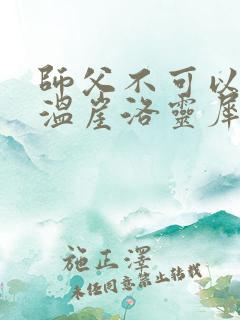 師父不可以
溫崖洛靈犀
施正澤
未經同意禁止轉載